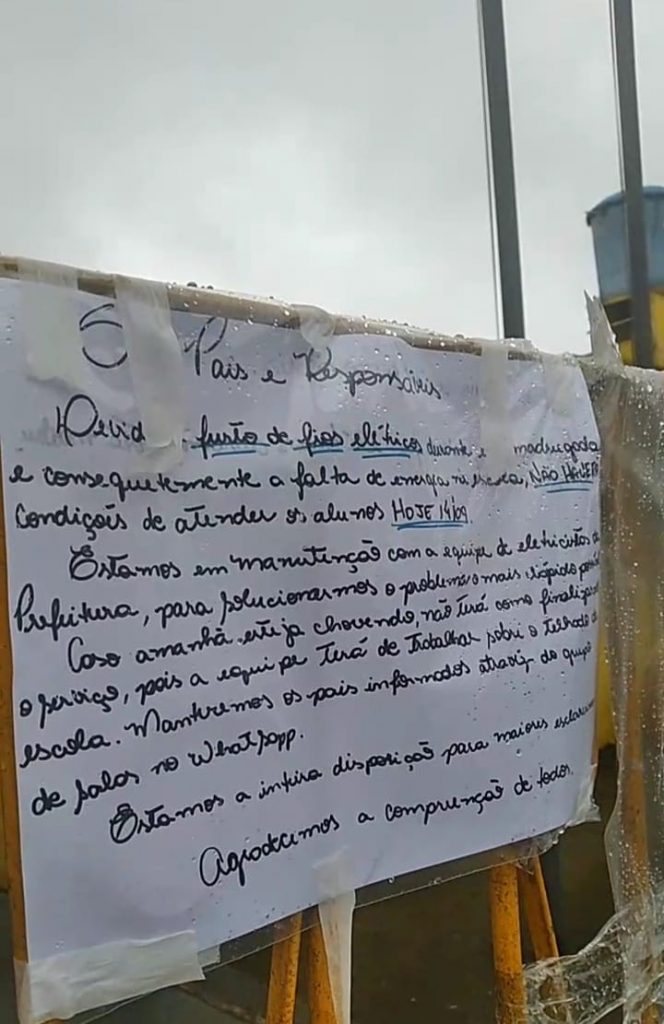 S Pais e Responsáveis
Devid furto de fios elétricos durante a madrugada
e consequetemente a falta de energia na escola, NÃO HAVERÁ
condições de atender os alunos HOJE 14/09.
Estamos em manutenção com a equipe de eletricistas da
Prefeitura, para solucionarmos o problema o mais rápido
Caso amanhã esteja chovendo, não terá como finalizar
o serviço, pois a equipe terá de trabalhar sobre o telhado da
escola. Manteremos os pais informados através do grupo
de salas no WhatsApp.
Estamos a inteira disposição para maiores
Agradecemos a comprenção de todos.